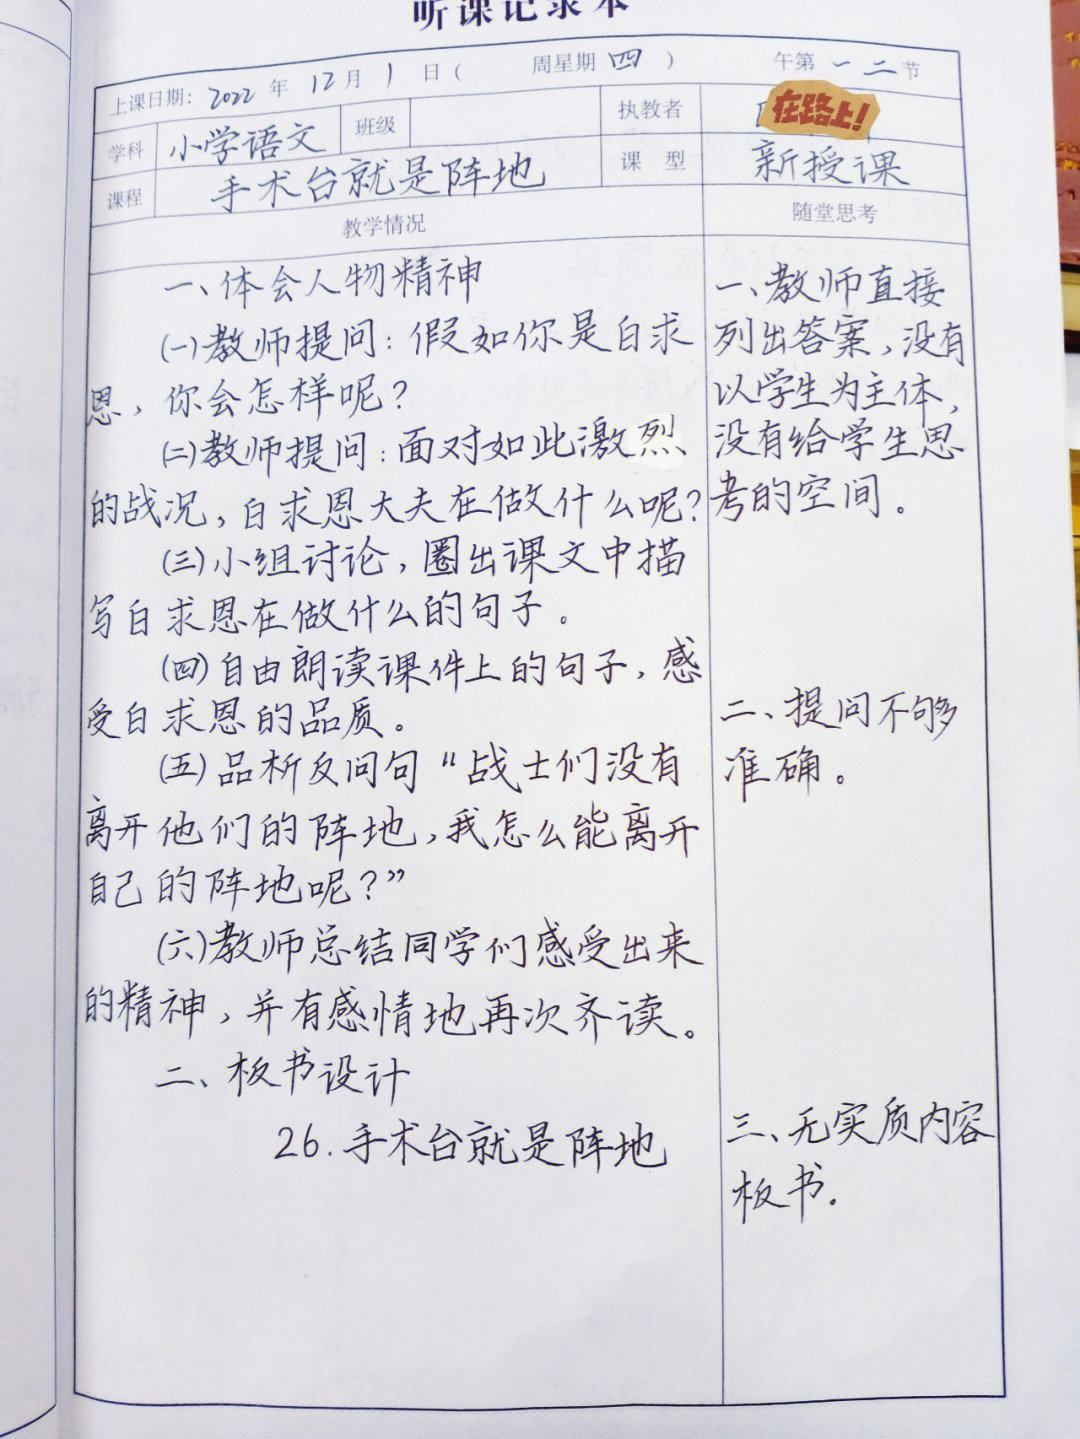 听课记录本
上课日期: 2022 年 12 月 1 日 ( 周星期 四 ) 午第 一二 节
学科 小学语文 班级 执教者 在路上!
课程 手术台就是阵地 课 型 新授课
教学情况 随堂思考
一、体会人物精神
(一)教师提问:假如你是白求
恩,你会怎样呢?
(二)教师提问:面对如此激烈
的战况,白求恩大夫在做什么呢?
(三)小组讨论,圈出课文中描
写白求恩在做什么的句子。
(四)自由朗读课件上的句子,感
受白求恩的品质。
(五)品析反问句“战士们没有
离开他们的阵地,我怎么能离开
自己的阵地呢?”
(六)教师总结同学们感受出来
的精神,并有感情地再次齐读。
二、板书设计
26.手术台就是阵地
一、教师直接
列出答案,没有
以学生为主体,
没有给学生思
考的空间。
二、提问不够
准确。
三、无实质内容
板书.